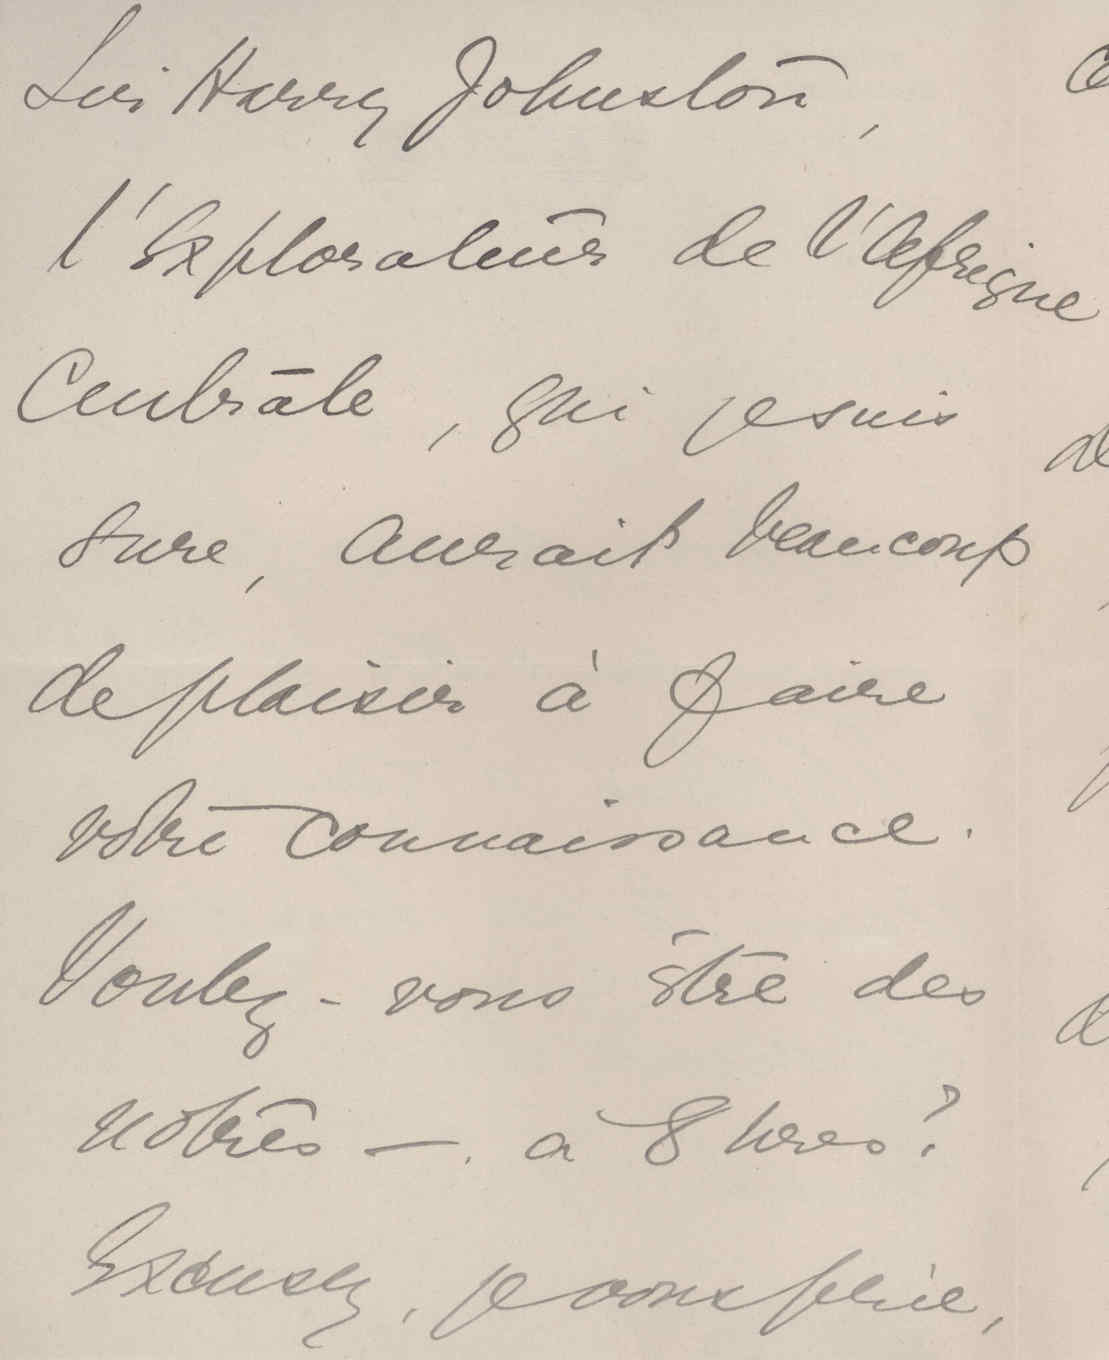 Sir Harry Johnston,
l'Explorateur de l'Afrique
Centrale, qui je suis
sure, aurait beaucoup
de plaisir à faire
votre connaissance.
Voulez-vous être des
nôtres — à 8 hres?
Excusez, je vous prie,